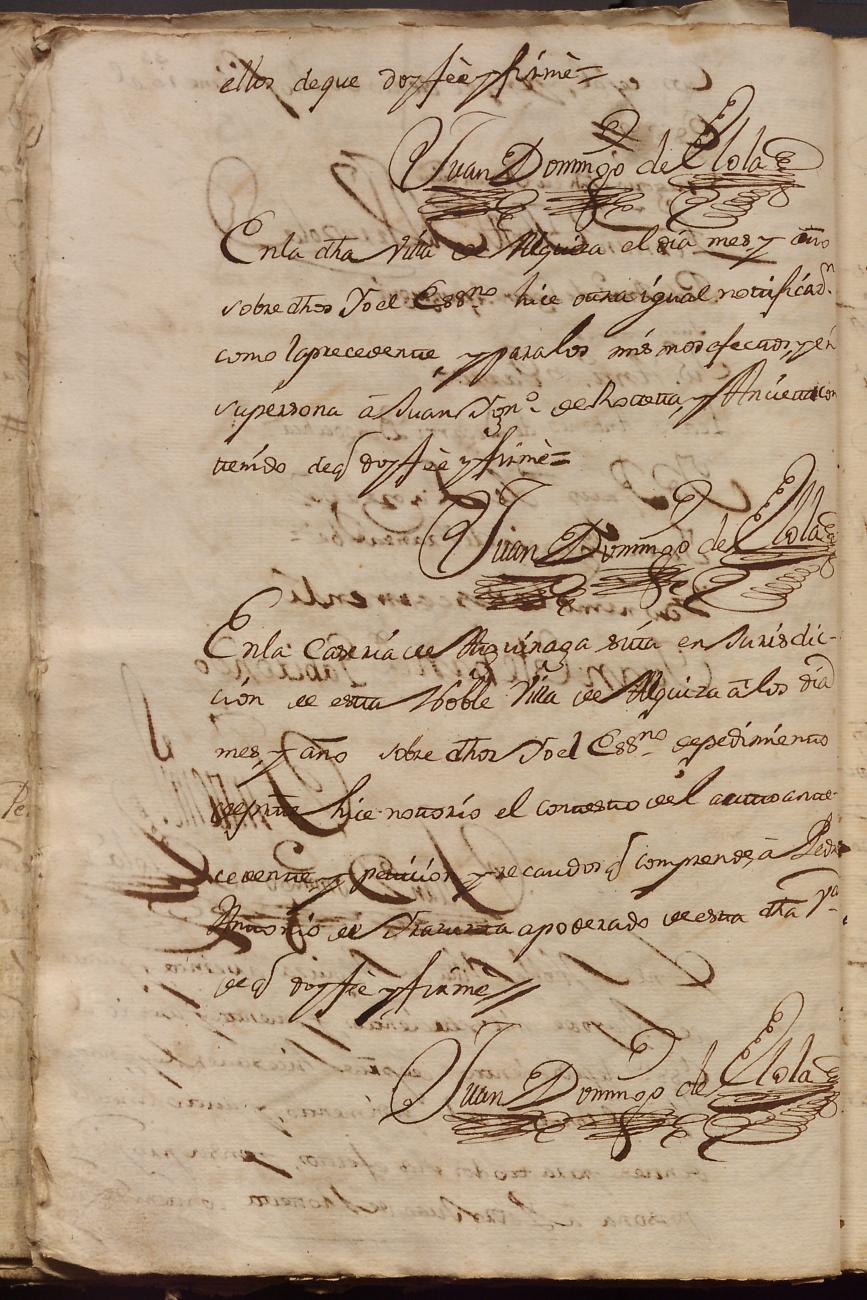 ellos deque doy fèe y firmè=
Juan Domingo de Elola
En la dha Villa de Alquiza el dia mes, y año
sobre dhos Yo el Essno hice otra igual notificaon
como la precedente, y para los mismos efectos, y en
su persona â Juan Ygno. de Rotetta, y Ancietta con
tenido de q doy fèe y firmè=
Juan Domingo de Elola
En la Caseria de Aizuinaga sitta en Jurisdic-
ción de esta Noble Villa de Alquiza â los dia
mes, y año sobre dhos Yo el Essno de pedimiento
de prtte hice nottorio el contesto del autto ante-
cedente, y peticion, y recaudos q comprende, â Pedro
Anttonio de apoderado de esta dha Va
de q doy fèe y firmè=
Juan Domingo de Elola